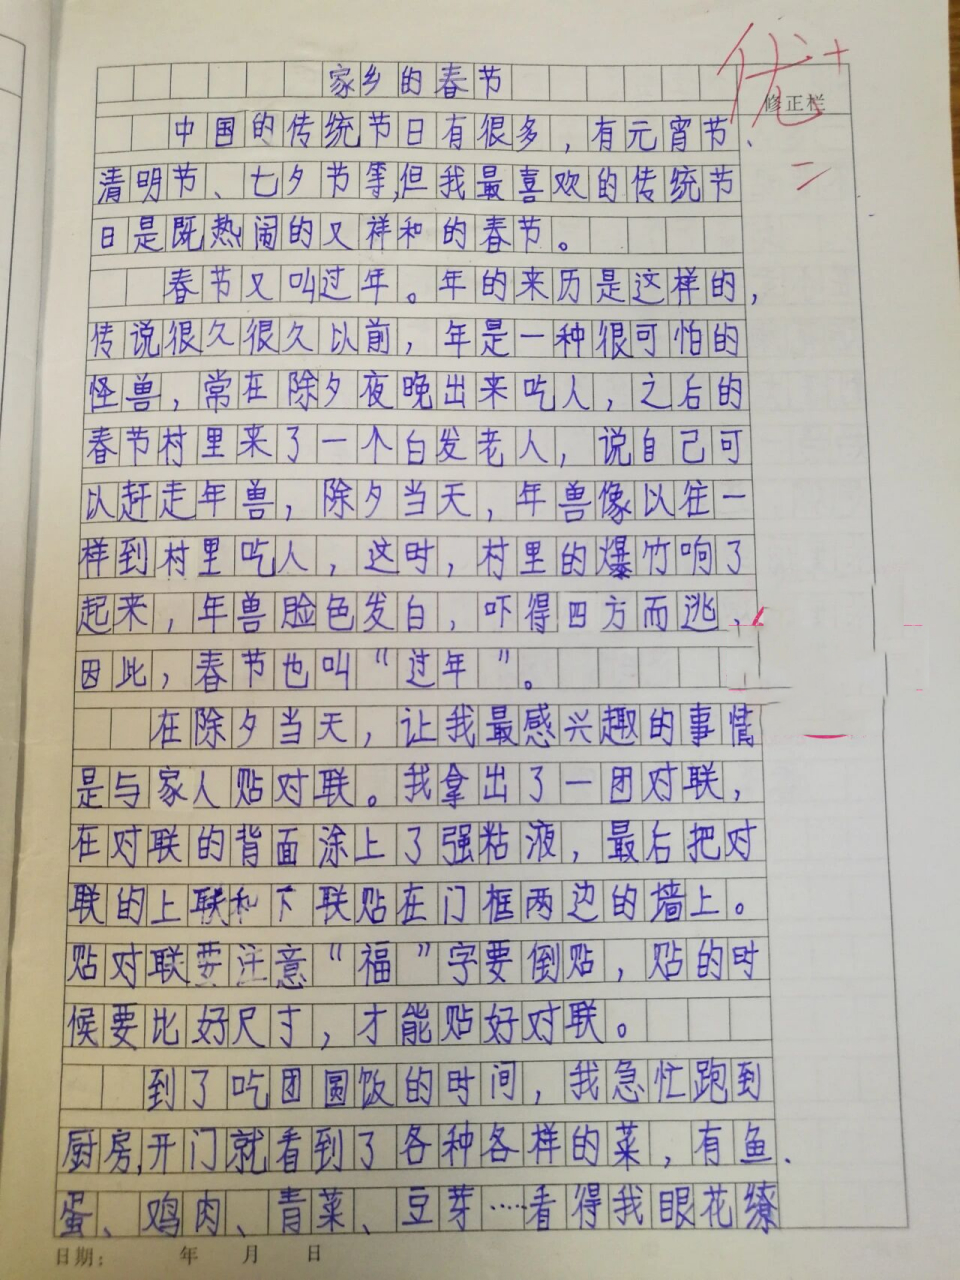 家乡的春节
优+
修正栏
中国的传统节日有很多，有元宵节、
清明节、七夕节等,但我最喜欢的传统节
日是既热闹的又祥和的春节。
春节又叫过年。年的来历是这样的，
传说很久很久以前，年是一种很可怕的
怪兽，常在除夕夜晚出来吃人，之后的
春节村里来了一个白发老人，说自己可
以赶走年兽，除夕当天，年兽像以往一
样到村里吃人，这时，村里的爆竹响了
起来，年兽脸色发白，吓得四方而逃、
因此，春节也叫“过年”。
在除夕当天，让我最感兴趣的事情
是与家人贴对联。我拿出了一团对联，
在对联的背面涂上了强粘液，最后把对
联的上联和下联贴在门框两边的墙上。
贴对联要注意“福”字要倒贴，贴的时
候要比好尺寸，才能贴好对联。
到了吃团圆饭的时间，我急忙跑到
厨房,开门就看到了各种各样的菜，有鱼、
蛋、鸡肉、青菜、豆芽……看得我眼花缭
日期： 年 月 日